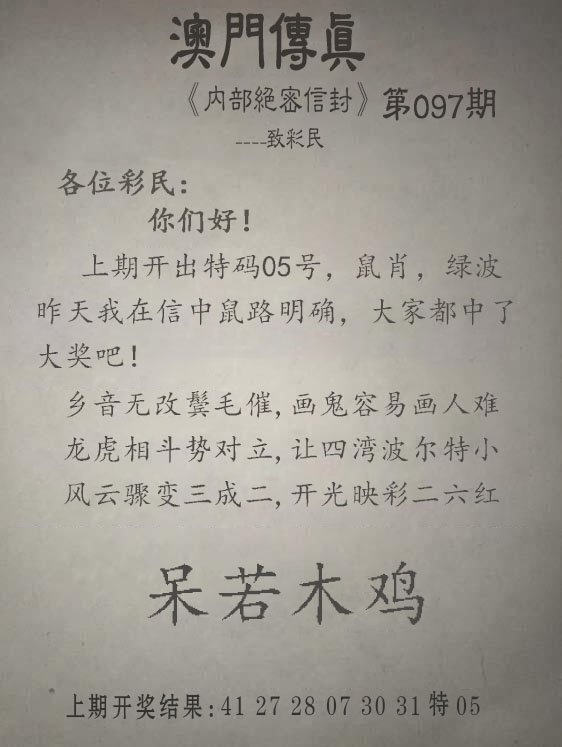 澳門傳真
《内部絕密信封》第097期
----致彩民
各位彩民：
你们好！
上期开出特码05号，鼠肖，绿波
昨天我在信中鼠路明确，大家都中了
大奖吧！
乡音无改鬓毛催,画鬼容易画人难
龙虎相斗势对立,让四湾波尔特小
风云骤变三成二,开光映彩二六红
呆若木鸡
上期开奖结果:41 27 28 07 30 31 特 05